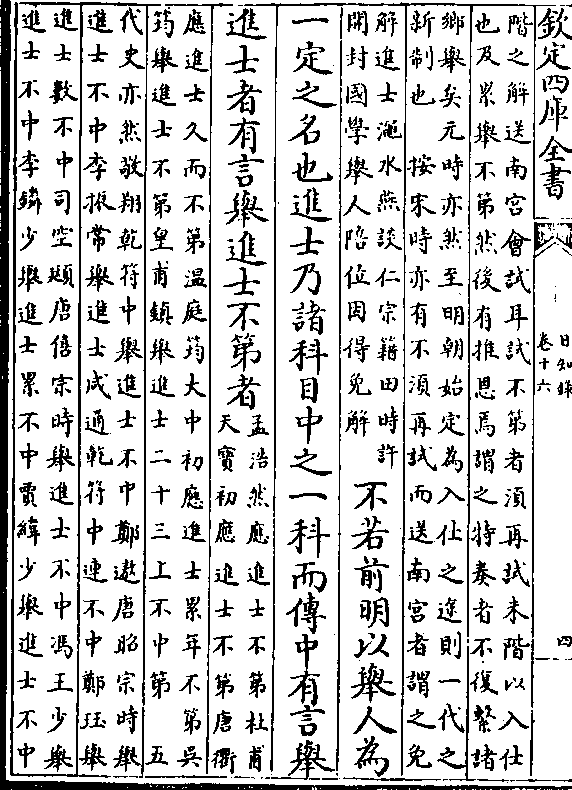 欽定四庫全書
日知錄
卷十六
四
階之解送南宮會試耳試不第者須再試未階以入仕
也及累舉不第然後有推恩焉謂之特奏者不復繫諸
鄉舉矣元時亦然至明朝始定為入仕之途則一代之
新制也 按宋時亦有不須再試而送南宮者謂之免
解進士澠水燕談仁宗籍田時許
開封國學舉人陪位因得免解
不若前明以舉人為
一定之名也進士乃諸科目中之一科而傳中有言舉
進士者有言舉進士不第者
孟浩然應進士不第杜甫
天寶初應進士不第唐衢
應進士久而不第溫庭筠大中初應進士累年不第吳
筠舉進士不第皇甫鎮舉進士二十三上不中第 五
代史亦然敬翔乾符中舉進士不中鄭遨唐昭宗時舉
進士不中李振常舉進士咸通乾符中連不中鄭珏舉
進士數不中司空頲唐僖宗時舉進士不中馮王少舉
進士不中李鏻少舉進士累不中賈緯少舉進士不中